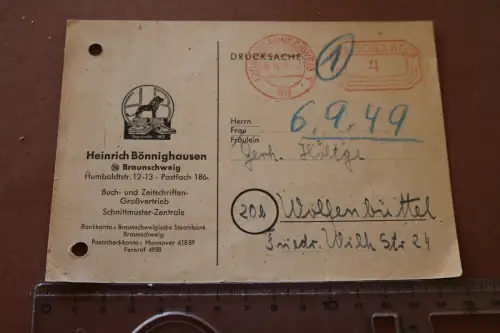 DRUCKSACHE
1
4
Heinrich Bönnighausen
20b Braunschweig
Humboldtstr. 12-13 - Postfach 186
Buch- und Zeitschriften-
Großvertrieb
Schnittmuster-Zentrale
Bankkonto: Braunschweigische Staatsbank
Braunschweig
Postscheckkonto: Hannover 61889
Fernruf 4938
Herrn
Frau
Fräulein
6.9.49
Gerh. Höltge
20b
Wolfenbüttel
Friedr. Wilh Str 24
1 2 3 4 5 6 7 8 9 10 11 12 13 14